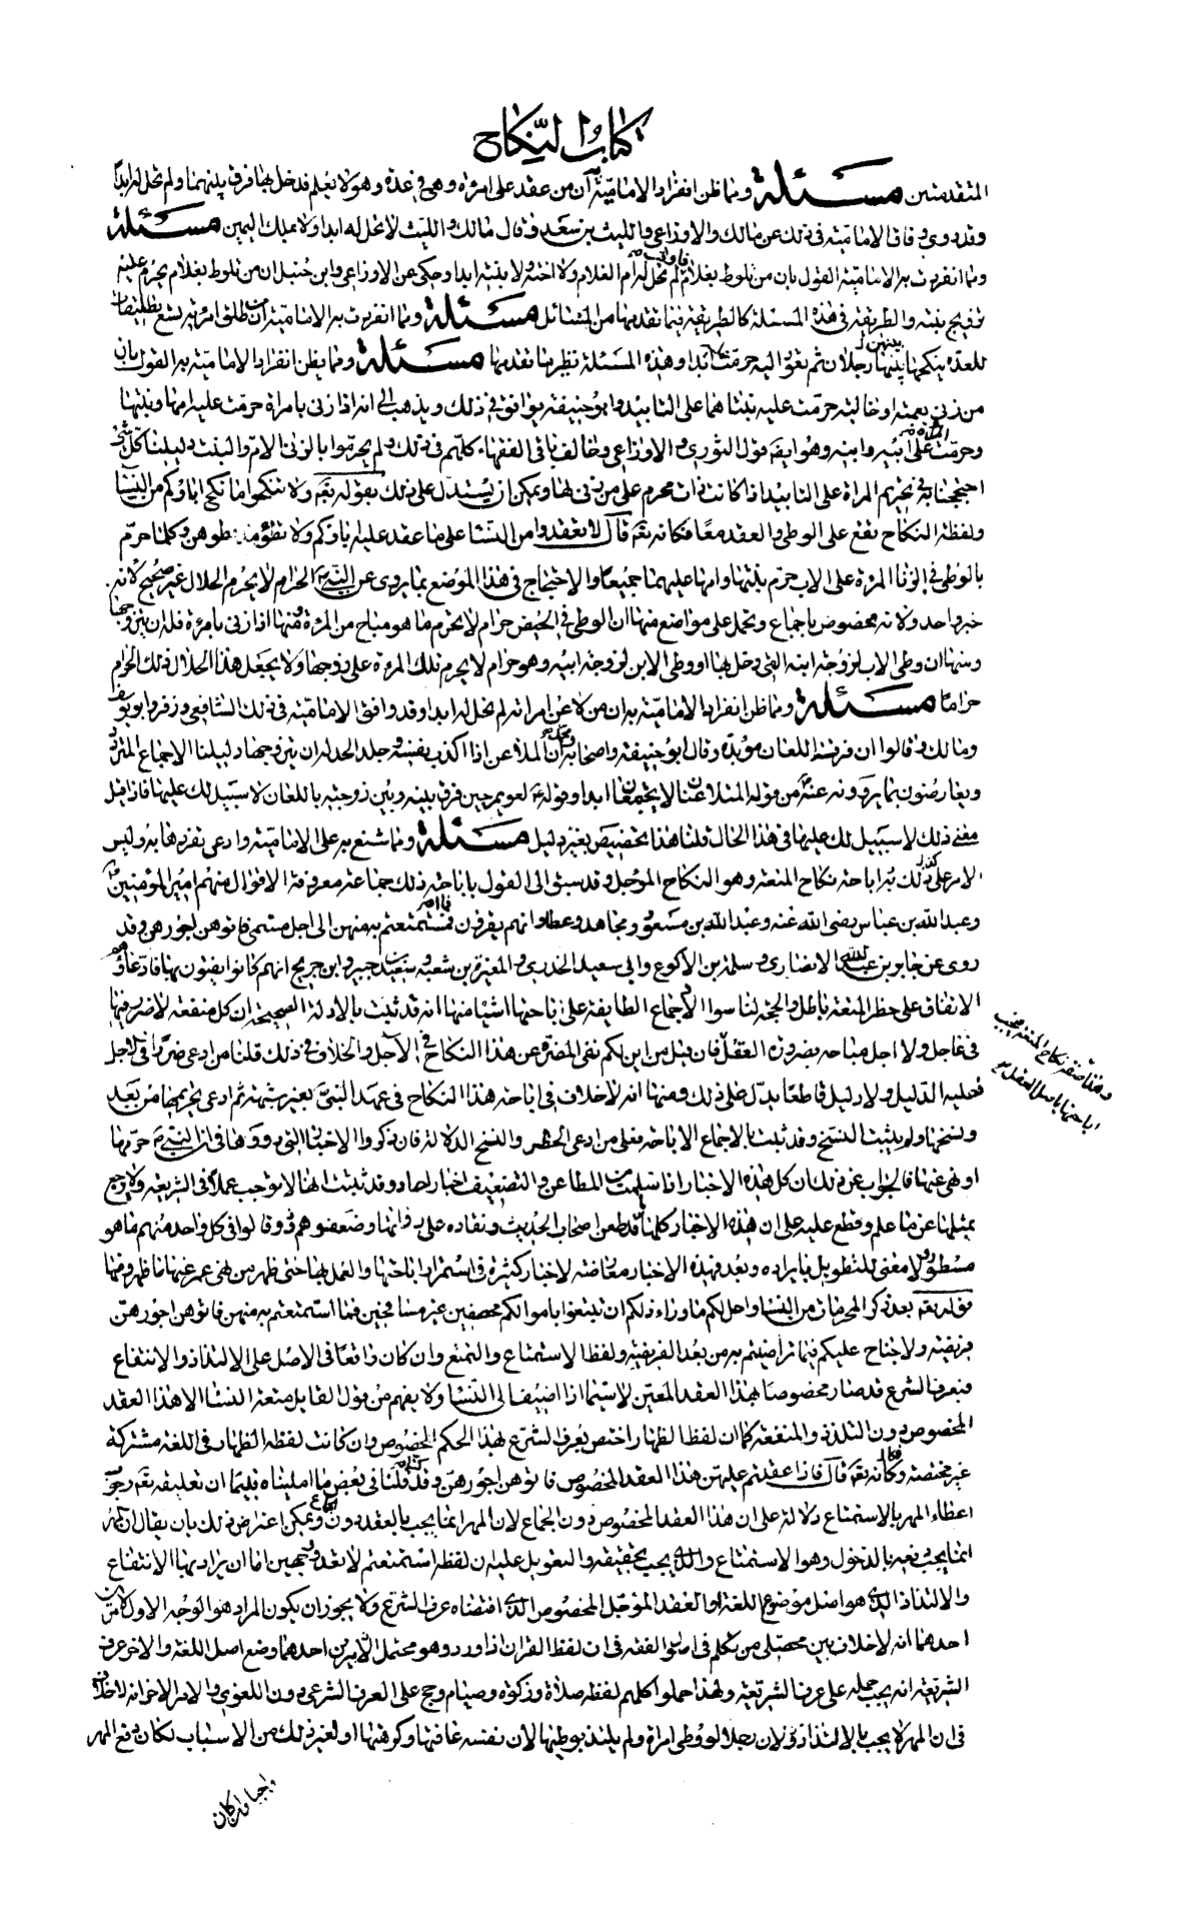 كتاب النكاح
المتقدمتين مسئلة ومما ظن انفراد الامامية به ان من عقد على امرءة وهى في عدة وهو لا يعلم فدخل بها فرق بينهما ولم تحل له ابدا
وقد وافق الامامية في ذلك عن مالك والاوزاعى والليث بن سعد وقال مالك والليث لا تحل له ابدا ولا بملك اليمين مسئلة
ومما انفردت به الامامية القول بان من تلوط بغلام فاوقب لم تحل له ام الغلام ولا اخته ولا بنته ابدا وحكى عن الاوزاعى وابن حنبل ان من تلوط بغلام يحرم عليه
تزويج بنته والطريقة في هذه المسئلة كالطريقة فيما تقدمها من المسائل مسئلة ومما انفردت به الامامية ان من طلق امرءته تسع تطليقات
للعدة ينكحها بينهن رجلان ثم تعود اليه حرمت عليه ابدا وهذه المسئلة نظير ما تقدمها مسئلة ومما يظن انفراد الامامية به القول بان
من زنى بعمته او خالته حرمت عليه بنتاهما على التابيد وابو حنيفة يوافق في ذلك ويذهب الى انه اذا زنى بامراة حرمت عليه امها وبنتها
وحرمت المراة على ابيه وابنه وهو ايضا قول الثورى والاوزاعى وخالف باقى الفقهاء كلهم في ذلك ولم يحرموا بالزنى الام والبنت دليلنا كل شئ
احتججنا به في تحريم المراة على التابيد اذا كانت ذات محرم على من زنى بها ويمكن ان يستدل على ذلك بقوله تعه ولا تنكحوا ما نكح اباؤكم من النساء
ولفظة النكاح تقع على الوطى والعقد معا فكانه تعه قال لا تعقدوا من النسا على ما عقد عليه اباؤكم ولا تطؤ ما وطوهن وكلما حرم
بالوطى في الزنا المرءة على الاب حرم بنتها وامها عليهما جميعا والاحتجاج في هذا الموضع بما يروى عن النبى الحرام لا يحرم الحلال غير صحيح لانه
خبر واحد ولانه مخصوص باجماع ويحمل على مواضع منها ان الوطى في الحيض حرام لا يحرم ما هو مباح من المرءة ومنها اذا زنى بامرءة فله ان يتزوجها
ومنها ان وطى الاب لزوجة ابنه التى دخل بها او وطى الابن لزوجة ابيه وهو حرام لا يحرم تلك المرءة على زوجها ولا يجعل هذا الحلال ذلك الحرام
حراما مسئلة ومما ظن انفراد الامامية به ان من لاعن امراته لم تحل له ابدا وقد وافق الامامية في ذلك الشافعى وزفر وابو يوسف
ومالك وقالوا ان فرقة اللعان مؤبدة وقال ابو حنيفة واصحابه ان الملاعن اذا اكذب نفسه وجلد الحد له ان يتزوجها دليلنا الاجماع المتردد
ويعارضون بما يروونه عنه من قوله المتلاعنان لا يجتمعان ابدا وقوله لعويمر حين فرق بينه وبين زوجته باللعان لا سبيل لك عليها فاذا قيل
معنى ذلك لا سبيل لك عليها في هذا الحال قلنا هذا تخصيص بغير دليل مسئلة ومما شنع به على الامامية وادعى تفردها به وليس
الامر على ذلك به اباحة نكاح المتعة وهو النكاح المؤجل وقد سبق الى القول باباحة ذلك جماعة معروفة الاقوال منهم امير المؤمنين
وعبدالله بن عباس رضى الله عنه وعبد الله بن مسعود ومجاهد وعطا وانهم يقرؤن فما استمتعتم به منهن الى اجل مسمى فاتوهن اجورهن وقد
روى عن جابر بن عبد الله الانصارى وسلمة بن الاكوع وابى سعيد الخدرى والمغيرة بن شعبة وسعيد بن جبير وابن جريج انهم كانوا يفتون بها فادعاؤهم
الاتفاق على حظر المتعة باطل والحجة لنا سوا الاجماع الطايفة على اباحتها اشيا منها انه قد ثبت بالادلة الصحيحة ان كل منفعة لا ضرر فيها
في عاجل ولا اجل مباحة بضرورة العقل فان قيل من اين لكم نفى المضرة عن هذا النكاح في الآجل والخلاف في ذلك قلنا من ادعى ضررا في الاجل
وهذه صفة نكاح المتعة فيجب
اباحتها باصل العقل صح
فعليه الدليل ولا دليل قاطعا يدل على ذلك ومنها انه لا خلاف في اباحة هذا النكاح في عهد النبى بغير شبهة ثم ادعى تحريمها من بعد
ونسخها ولم يثبت النسخ وقد ثبت بالاجماع الاباحة فعلى من ادعى الحظر والنسخ الدلالة فان ذكروا الاخبار التى رووها في ان النبى حرمها
او نهى عنها فالجواب عن ذلك ان كل هذه الاخبار اذا سلمت من المطاعن والتضعيف اخبار احاد وقد ثبت انها لا توجب عملا في الشريعة ولا يرجع
بمثلها عن ما علم وقطع عليه على ان هذه الاخبار كلها قد طعن اصحاب الحديث ونقاده على رواتها وضعفوهم وقالوا في كل واحد منهم ما هو
مسطور لا معنى للتطويل بايراده وبعد فهذه الاخبار معارضة لاخبار كثيرة في استمرار اباحتها والعمل بها حتى ظهر من نهى عمر عنها ما ظهر ومنها
قوله تعه بعد ذكر المحرمات من النسا واحل لكم ما وراء ذلكم ان تبتغوا باموالكم محصنين غير مسافحين فما استمتعتم به منهن فاتوهن اجورهن
فريضة ولا جناح عليكم فيما تراضيتم به من بعد الفريضة ولفظ الاستمتاع والتمتع وان كان واقعا في الاصل على الالتذاذ والانتفاع
فبعرف الشرع قد صار مخصوصا بهذا العقد المعين لا سيما اذا اضيف الى النسا ولا يفهم من قول القايل متعة النسا الا هذا العقد
المخصوص دون التلذذ والمنفعة كما ان لفظ الظهار اختص بعرف الشرع بهذا الحكم المخصوص وان كانت لفظة الظهار في اللغة مشتركة
غير مختصة فكانه تعه قال فاذا عقدتم عليهن هذا العقد المخصوص فاتوهن اجورهن وقد كنا قلنا في بعض ما امليناه قديما ان تعليقه تعه وجوب
اعطاء المهر بالاستمتاع دلالة على ان هذا العقد المخصوص دون الجماع لان المهر انما يجب بالعقد دون الجماع ويمكن اعتراض ذلك بان يقال ان المهر
انما يجب دفعه بالدخول وهو الاستمتاع والذى يجب تحقيقه والتعويل عليه ان لفظة استمتعتم لا تعدو وجهين اما ان يراد بها الانتفاع
والالتذاذ الذى هو اصل موضوع اللغة او العقد المؤجل المخصوص الذى اقتضاه عرف الشرع ولا يجوز ان يكون المراد هو الوجه الاول لامرين
احدهما انه لا خلاف بين محصلى من تكلم في اصول الفقه في ان لفظ القران اذا ورد وهو محتمل لامرين احدهما وضع اصل اللغة والاخر عرف
الشريعة انه يجب حمله على عرف الشريعة ولهذا حملوا كلهم لفظة صلاة وزكوة وصيام وحج على العرف الشرعى دون اللغوى والامر الاخر انه لا خلاف
في ان المهر لا يجب بالالتذاذ لان رجلا لو وطى امراة ولم يلتذ بوطيها لان نفسه عافتها وكرهتها او لغير ذلك من الاسباب لكان دفع المهر
واجبا وان كان